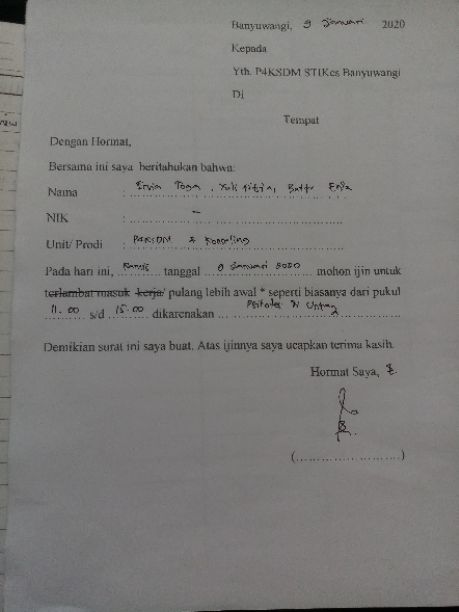 Banyuwangi, 9 Januari 2020
Kepada
Yth. P4KSDM STIKes Banyuwangi
Di
Tempat
Dengan Hormat,
Bersama ini saya beritahukan bahwa:
Nama : Ervin Toga, Yuli
NIK : -
Unit/ Prodi : P4KSDM &
Pada hari ini, Kamis tanggal 9 Januari 2020 mohon ijin untuk
terlambat masuk kerja/ pulang lebih awal * seperti biasanya dari pukul
11.00 s/d 15.00 dikarenakan
Demikian surat ini saya buat. Atas ijinnya saya ucapkan terima kasih.
Hormat Saya,
(........................)